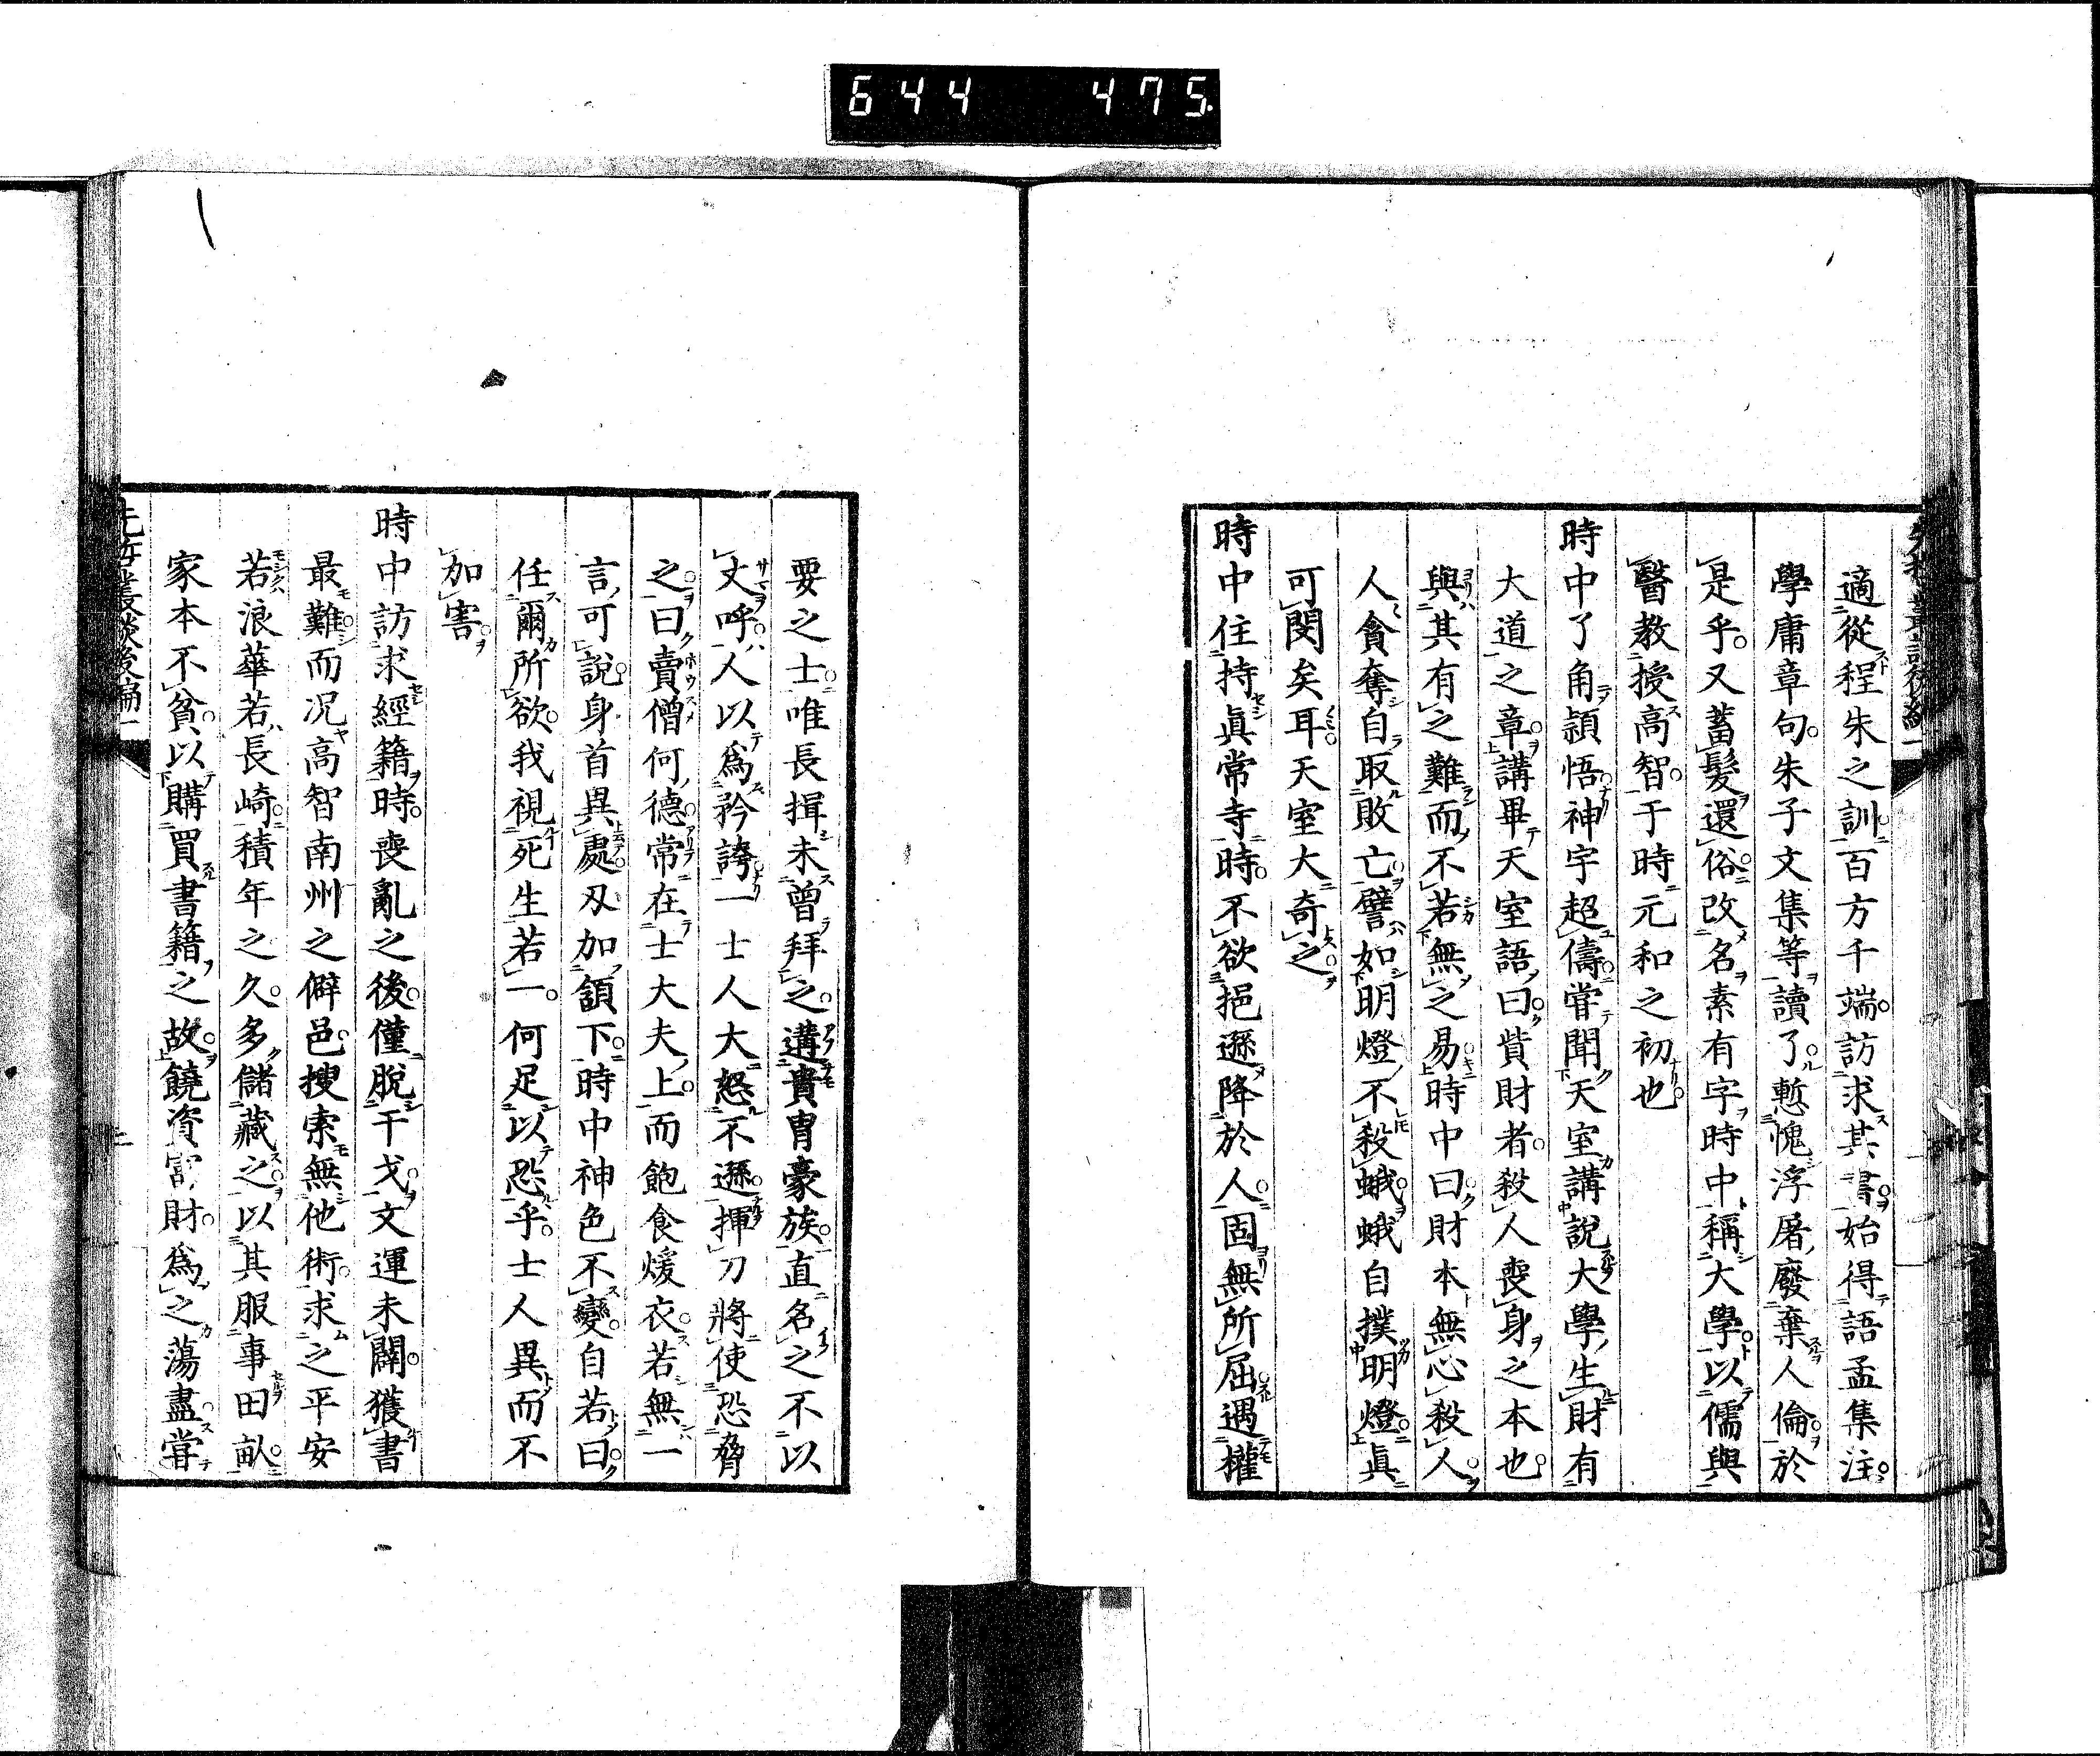 644 475
適從程朱之訓百方千端訪求其書始得語孟集注
學庸章句朱子文集等讀了慙愧浮屠廢棄人倫於
是乎又蓄髮還俗改名素有字時中稱大學以儒與
醫教授高智于時元和之初也
時中了角頴悟神宇超儔嘗聞天室講說大學生財有
大道之章講畢天室語曰貨財者殺人喪身之本也
與其有之難而不若無之易時中曰財本無心殺人
人貪奪自取敗亡譬如明燈不殺蛾蛾自撲明燈眞
可閔矣耳天室大奇之
時中住持眞常寺時不欲挹遜降於人固無所屈遇權
要之士唯長揖未曾拜之遘貴胄豪族直名之不以
丈呼人以爲矜誇一士人大怒不遜揮刀將使恐脅
之曰賣僧何德常在士大夫上而飽食煖衣若無一
言可說身首異處刄加頷下時中神色不變自若曰
任爾所欲我視死生若一何足以恐乎士人異而不
加害
時中訪求經籍時喪亂之後僅脫干戈文運未闢獲書
最難而况高智南州之僻邑搜索無他術求之平安
若浪華若長崎積年之久多儲藏之以其服事田畝
家本不貧以購買書籍之故饒資富財爲之蕩盡嘗
先哲叢談後編一
二